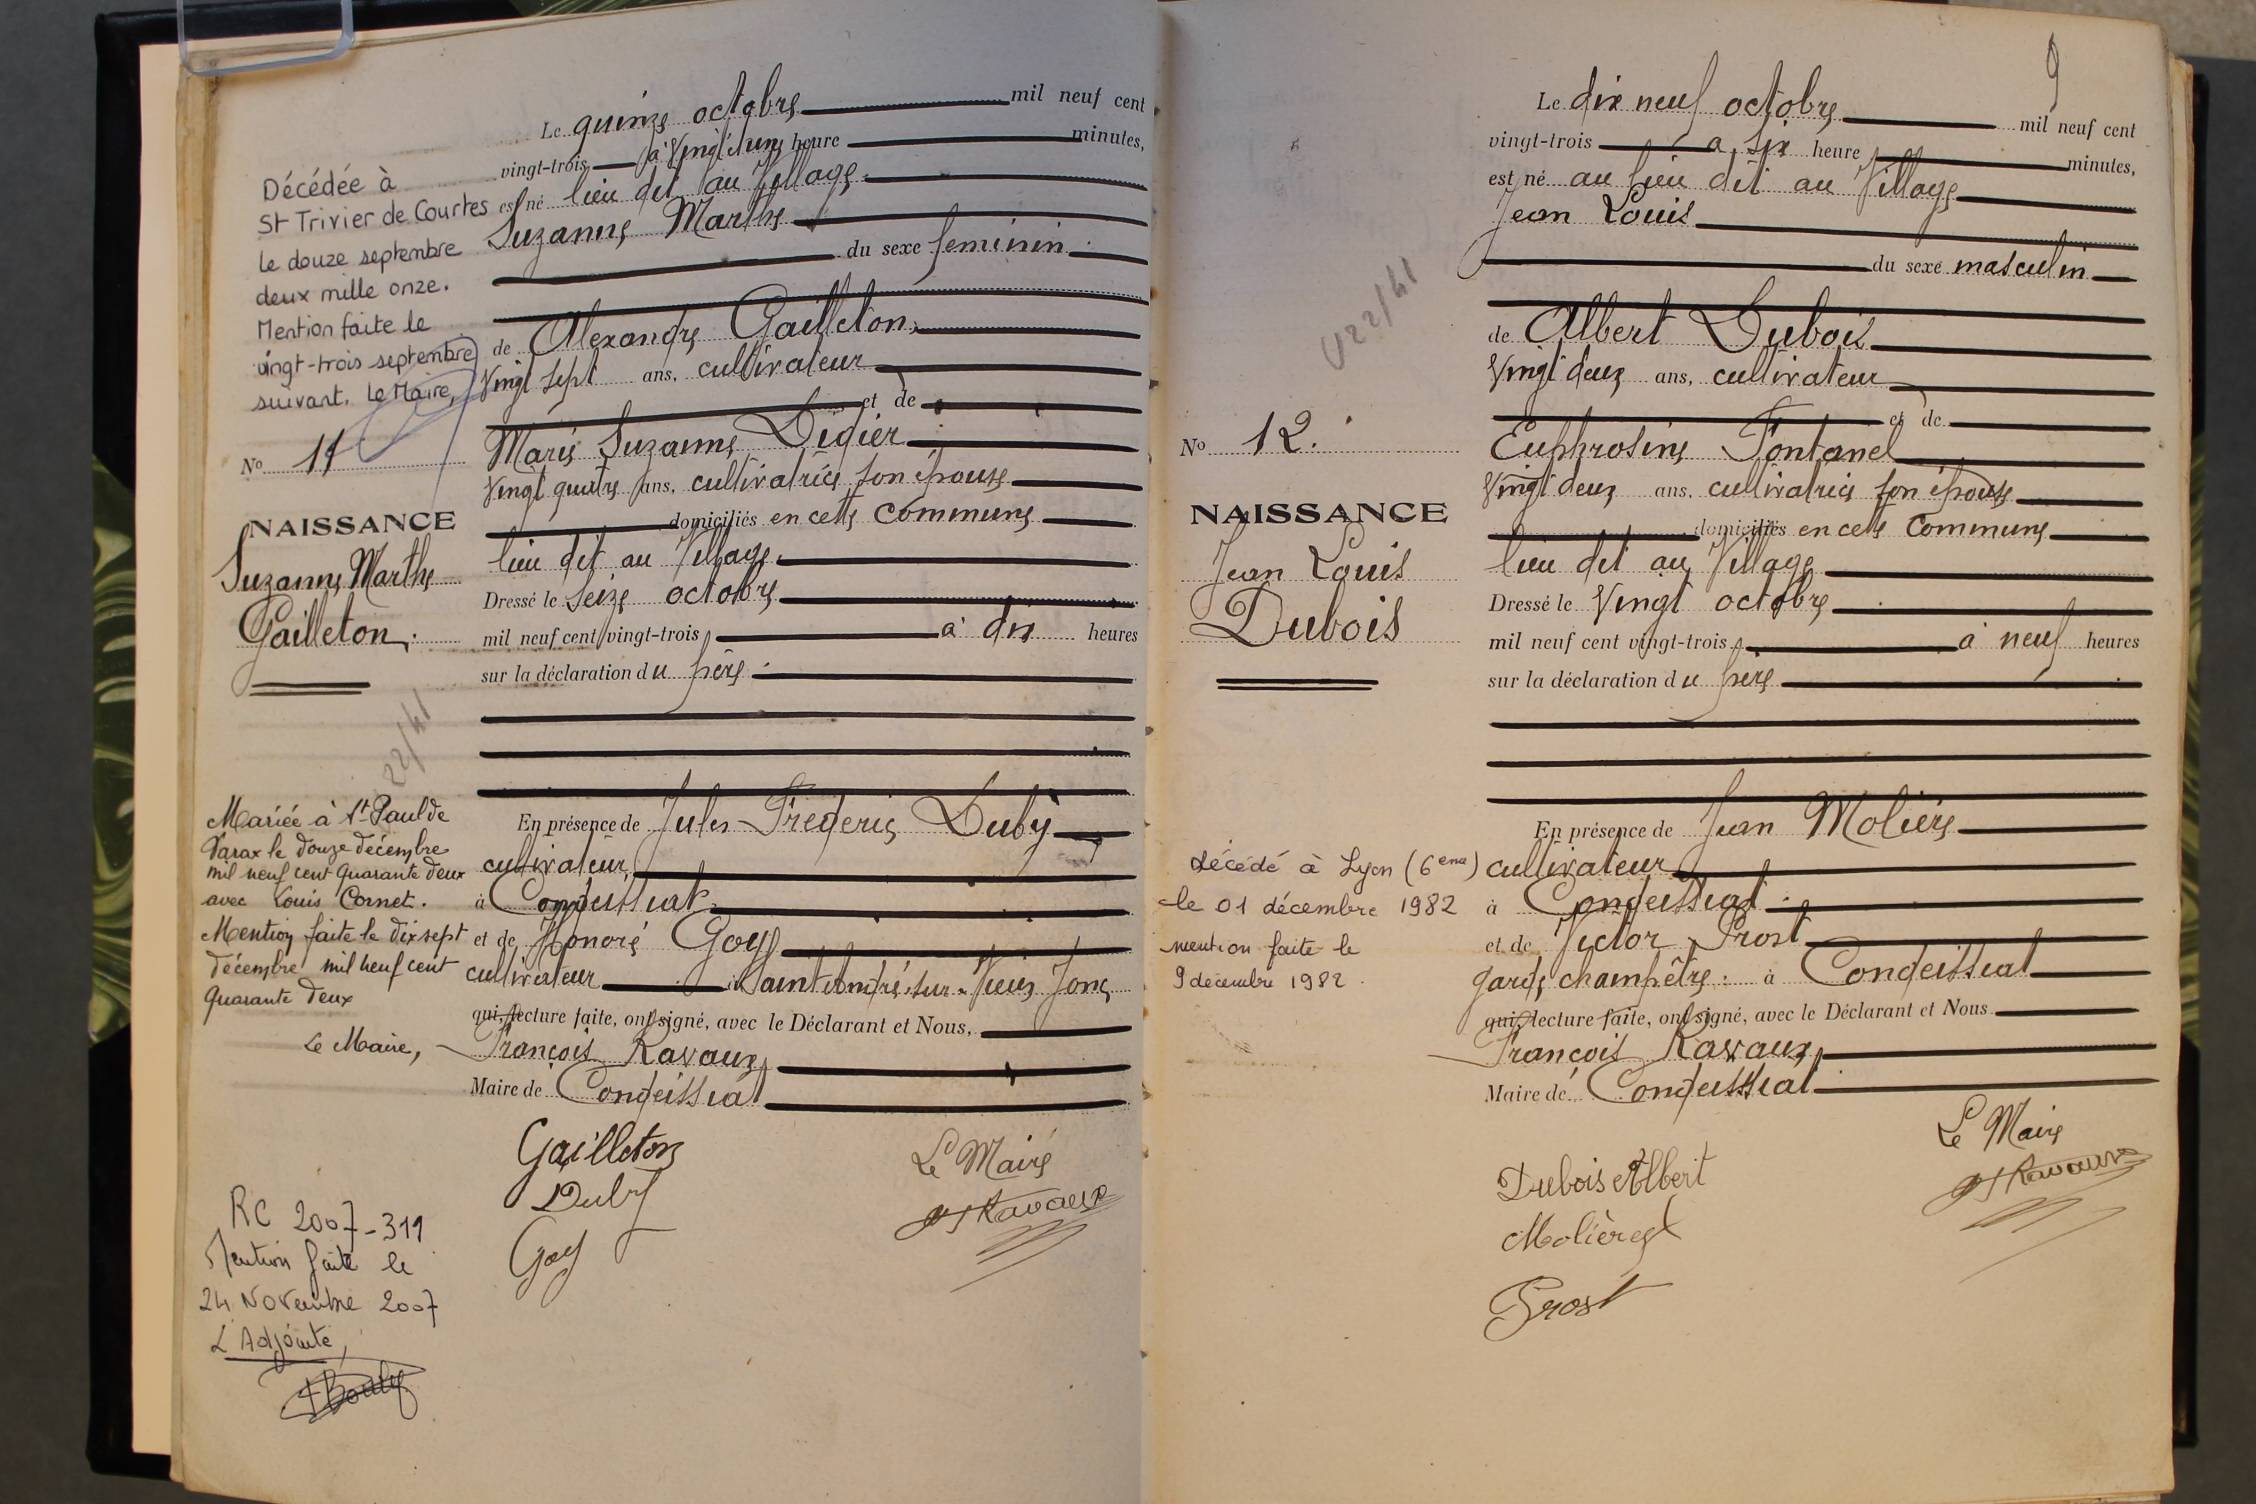 Le quinze octobre mil neuf cent
vingt-trois à Vingt et une heure minutes,
est né lieu dit au Village
Suzanne Marthe
du sexe feminin
de Alexandre Gailleton
Vingt sept ans, cultivateur
et de
Marie Suzanne Didier
Vingt quatre ans, cultivatrice son épouse
domiciliés en cette commune
lieu dit au Village
Dressé le Seize octobre
mil neuf cent vingt-trois à dix heures
sur la déclaration du père
En présence de Jules Frederic Duby
cultivateur
à Condeissiat
et de Honoré Goy
cultivateur à Saint André sur Vieux Jonc
qui, lecture faite, ont signé, avec le Déclarant et Nous,
François Ravaux
Maire de Condeissiat
Gailleton
Duby
Goy
Le Maire
Ravaux
Décédée à
St Trivier de Courtes
le douze septembre
deux mille onze.
Mention faite le
vingt-trois septembre
suivant. Le Maire,
No 11
NAISSANCE
Suzanne Marthe
Gailleton
22/41
Mariée à St Paul de
Varax le douze décembre
mil neuf cent quarante deux
avec Louis Cornet.
Mention faite le dix sept
décembre mil neuf cent
quarante deux
Le Maire,
RC 2007-311
Mention faite le
24 Novembre 2007
L'Adjointe,
9
Le dix neuf octobre mil neuf cent
vingt-trois à six heure minutes,
est né au lieu dit au Village
Jean Louis
du sexe masculin
de Albert Dubois
Vingt deux ans, cultivateur
et de
Euphrosine Fontanel
Vingt deux ans, cultivatrice son épouse
domiciliés en cette commune
lieu dit au Village
Dressé le Vingt octobre
mil neuf cent vingt-trois à neuf heures
sur la déclaration du père
En présence de Jean Molière
cultivateur
à Condeissiat
et de Victor Prost
garde champêtre à Condeissiat
qui, lecture faite, ont signé, avec le Déclarant et Nous
François Ravaux
Maire de Condeissiat
Dubois Albert
Molière
Prost
Le Maire
Ravaux
22/41
No 12.
NAISSANCE
Jean Louis
Dubois
Décédé à Lyon (6eme)
le 01 décembre 1982
mention faite le
9 décembre 1982